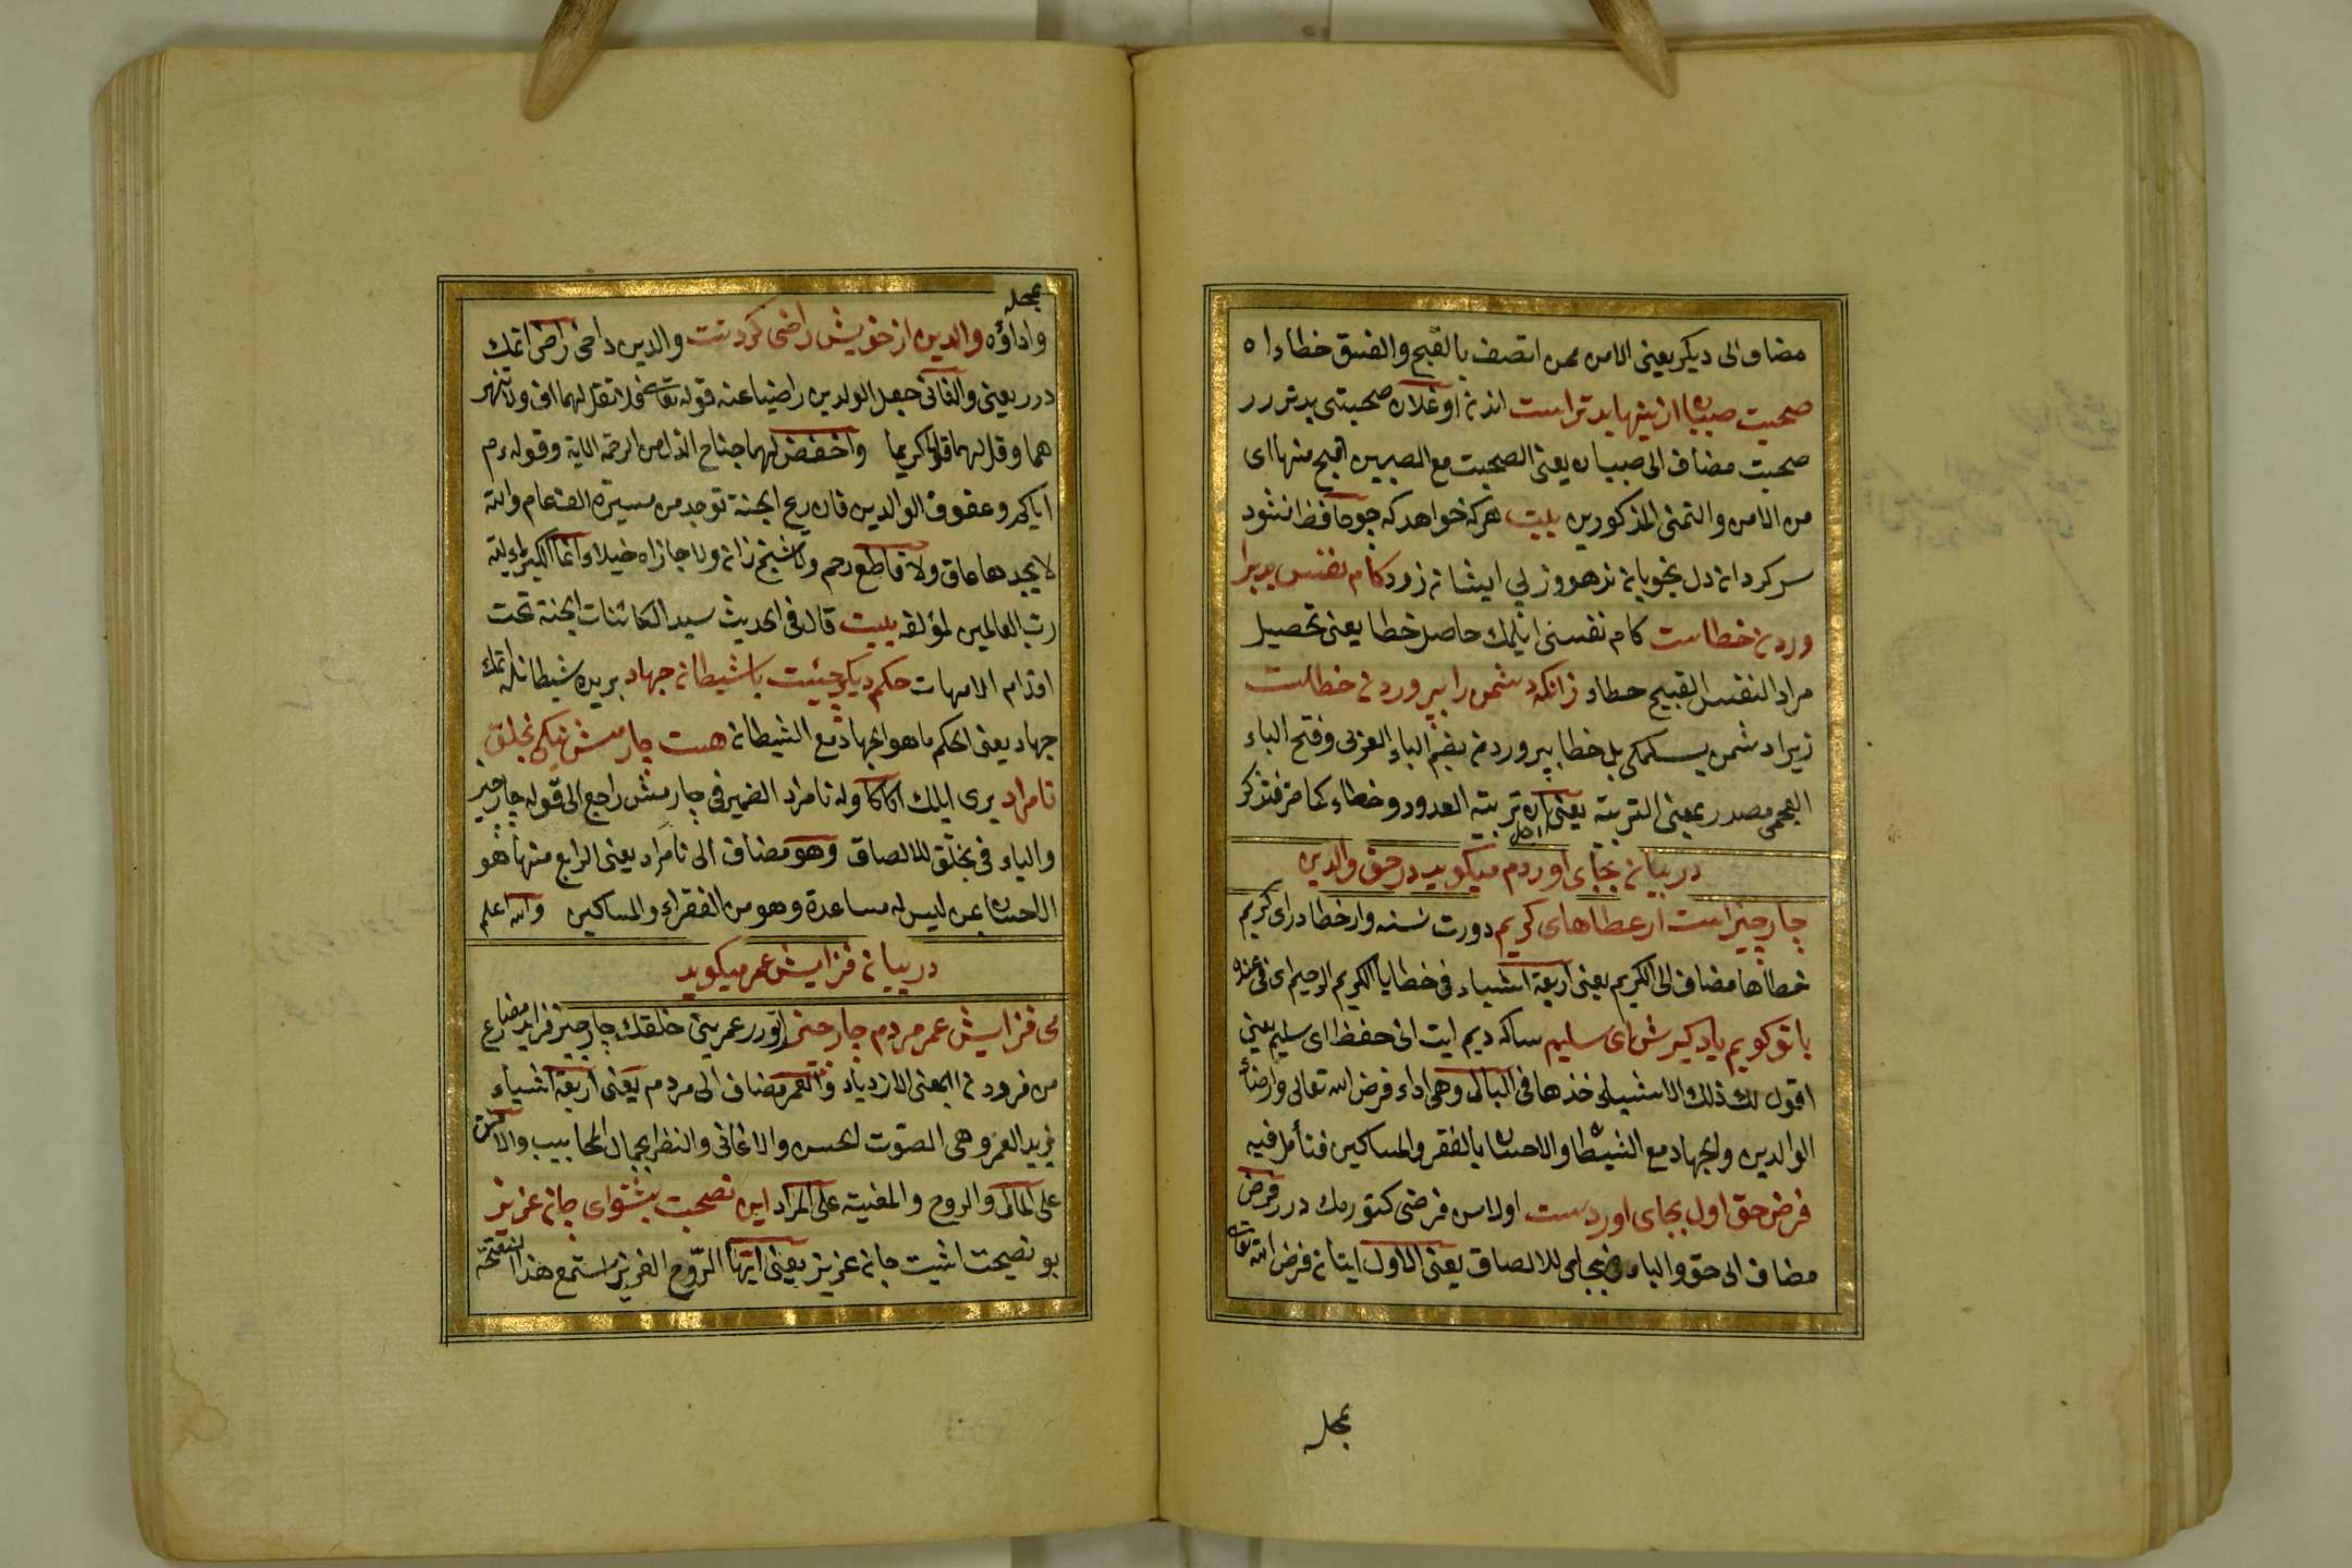 مضاف الى ديكر يعنى الامن ممن اتصف بالقبح والفسق خطاء اه
صحبت صبيان ازينها بدتر است اندن اوغلان صحبتى بدتر در
صحبت مضاف الى صبيان يعنى الصحبت مع الصبيين اقبح منها اى
من الامن والتمنى المذكورين بيت هركه خواهد كه جوحافظ نشود
سر كردان دل بخوبان ندهد وز پى ايشان نرود كام نفس بد برا
وردن خطاست كام نفسنى ايلمك حاصل خطا يعنى تحصيل
مراد النفس القبيح خطاء زانكه دشمن را پروردن خطاست
زيرا دشمن بسلمكى بل خطا پروردن بفتح الباء العربى وفتح الباء
العجمى مصدر بمعنى التربية يعنى لان تربية العدو وخطاء كما مر فتذكر
در بيان بجاى اوردم ميكويد در حق والدين
چار چيز است از عطاهاى كريم دورت نسنه وار خطادر اى كريم
خطاها مضاف الى الكريم يعنى اربعة اشياء فى خطايا الكريم الرحيم اى فى عنده
با تو كويم ياد كيرش اى سليم ساكه ديم ايت انى حفظ اى سليم يعنى
اقول لك ذلك الاشياء خذها فى البال وهى اداء فرض الله تعالى وارضاء
الوالدين والجهاد مع الشيطان والاحسان بالفقر والمساكين فتأمل فيه
فرض حق اول بجاى اوردست اولاس فرضى كتورمك در فرض
مضاف الى حق والباء فى بجاى للالصاق يعنى الاول ايتان فرض الله تعالى
بمحله
بمحله
واداؤه والدين از خويش راضى كردنست والدين دامى راض اتمك
در يعنى والثانى جعل الوالدين راضيا عنه قوله تعالى فلا تقل لهما اف ولا تنهر
هما وقل لهما قولا كريما واخفض لهما جناح الذل من الرحمة الاية وقوله عم
اياكم وعقوق الوالدين فان ريح الجنة توجد من مسيرة الف عام والله
لا يجدها عاق ولا قاطع رحم ولا شيخ زان ولا جار ازاره خيلاء انما الكبرياء لله
رب العالمين لمؤلفه بيت قال فى الحديث سيد الكائنات الجنة تحت
اقدام الامهات حكم ديكر چيست با شيطان جهاد بريده شيطانله اتمك
جهاد يعنى الحكم ما هو الجهاد مع الشيطان هست چارمش نيكى بخلق
نامراد برى ايلك اكا كاوله نامراد الضمير فى چارمش راجع الى قوله چار چيز
والباء فى بخلق للالصاق وهو مضاف الى نامراد يعنى الرابع منها هو
الاحسان بمن ليس له مساعدة وهو من الفقراء والمساكين والله اعلم
در بيان فزايش عمر ميكويد
مى فزايش عمر مردم چار چيز ارتورر عمرينى خلقك چار چيز فزايد مضارع
من فزودن بمعنى الازدياد والعمر مضاف الى مردم يعنى اربعة اشياء
يزيد العمر وهى الصوت الحسن والاغانى والنظر بجمال المحابيب والامن
على المال والروح والمغنية على المراد اين نصيحت بشنو اى جان عزيز
بو نصيحت اشيت جان عزيز يعنى ايها الروح العزيز استمع هذا النصيحة